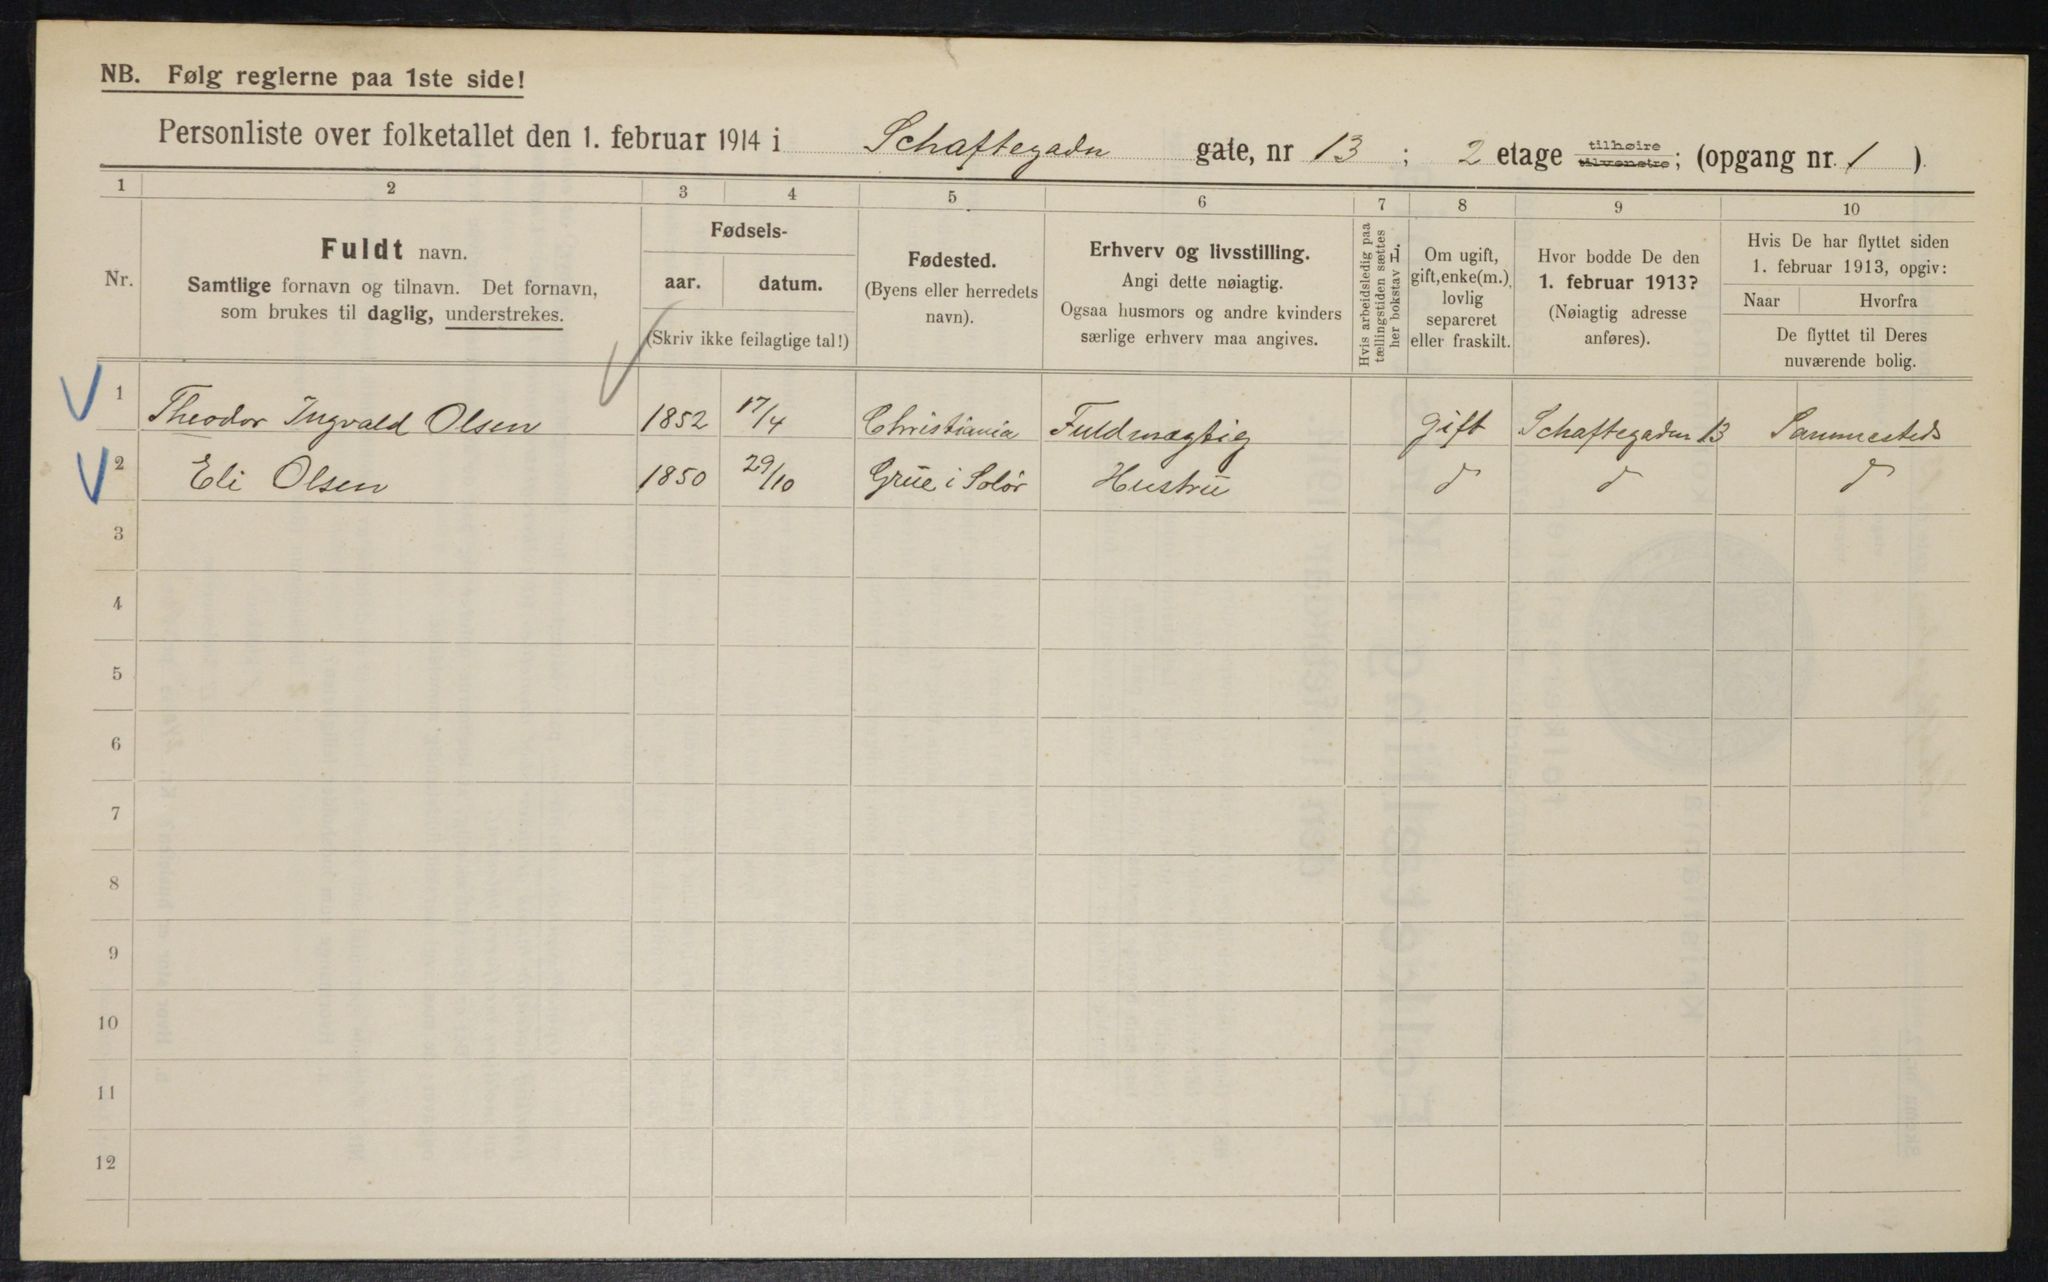 NB. Følg reglerne paa 1ste side!
Personliste over folketallet den 1. februar 1914 i Schaftegadn gate, nr 13 ; 2 etage tilhøire tilvenstre; (opgang nr. 1 ).
1 2 3 4 5 6 7 8 9 10
Nr.
Fuldt navn.
Samtlige fornavn og tilnavn. Det fornavn,
som brukes til daglig, understrekes.
Fødsels-
aar. datum.
(Skriv ikke feilagtige tal!)
Fødested.
(Byens eller herredets
navn).
Erhverv og livsstilling.
Angi dette nøiagtig.
Ogsaa husmors og andre kvinders
særlige erhverv maa angives.
Hvis arbeidsledig paa
tællingstiden sættes
her bokstav L.
Om ugift,
gift, enke(m.),
lovlig
separeret
eller fraskilt.
Hvor bodde De den
1. februar 1913?
(Nøiagtig adresse
anføres).
Hvis De har flyttet siden
1. februar 1913, opgiv:
Naar Hvorfra
De flyttet til Deres
nuværende bolig.
1 Theodor Ingvald Olsen 1852 17/4 Christiania Fuldmægtig gift Schaftegaden 13 Sammesteds
2 Eli Olsen 1850 29/10 Grue i Solør Hustru d d d
3
4
5
6
7
8
9
10
11
12